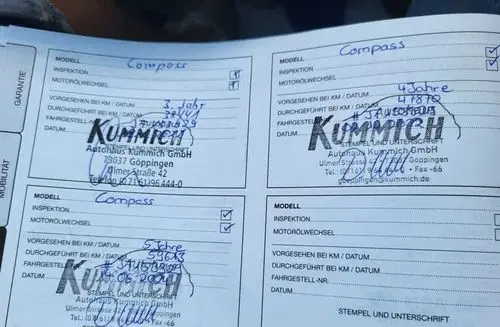 GARANTIE
MOBILITÄT
MODELL Compass
INSPEKTION
MOTORÖLWECHSEL
VORGESEHEN BEI KM / DATUM 3. Jahr
DURCHGEFÜHRT BEI KM / DATUM
FAHRGESTELL-
DATUM
KUMMICH
STEMPEL UND UNTERSCHRIFT
Autohaus Kummich GmbH
73037 Göppingen
Ulmer Straße 42
Telefon (0 71 61) 96 444-0
MODELL Compass
INSPEKTION
MOTORÖLWECHSEL
VORGESEHEN BEI KM / DATUM 4 Jahre
DURCHGEFÜHRT BEI KM / DATUM 47870
FAHRGESTELL-
DATUM
KUMMICH
STEMPEL UND UNTERSCHRIFT
Autohaus Kummich GmbH
Göppingen
Fax -66
goeppingen@kummich.de
MODELL Compass
INSPEKTION
MOTORÖLWECHSEL
VORGESEHEN BEI KM / DATUM 5 Jahre
DURCHGEFÜHRT BEI KM / DATUM 59613
FAHRGESTELL-
DATUM
KUMMICH
STEMPEL UND UNTERSCHRIFT
Autohaus Kummich GmbH
Göppingen
Fax -66
MODELL
INSPEKTION
MOTORÖLWECHSEL
VORGESEHEN BEI KM / DATUM
DURCHGEFÜHRT BEI KM / DATUM
FAHRGESTELL-NR.
DATUM
STEMPEL UND UNTERSCHRIFT